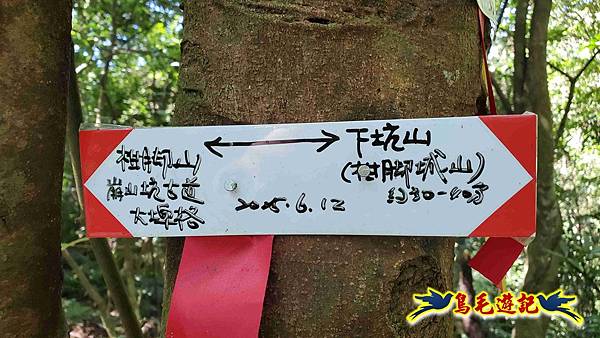 樹脚山
崩山坑古道
大埤格
下坑山
(樹脚城山)
約30-40分
2025.6.12
鳥毛遊記